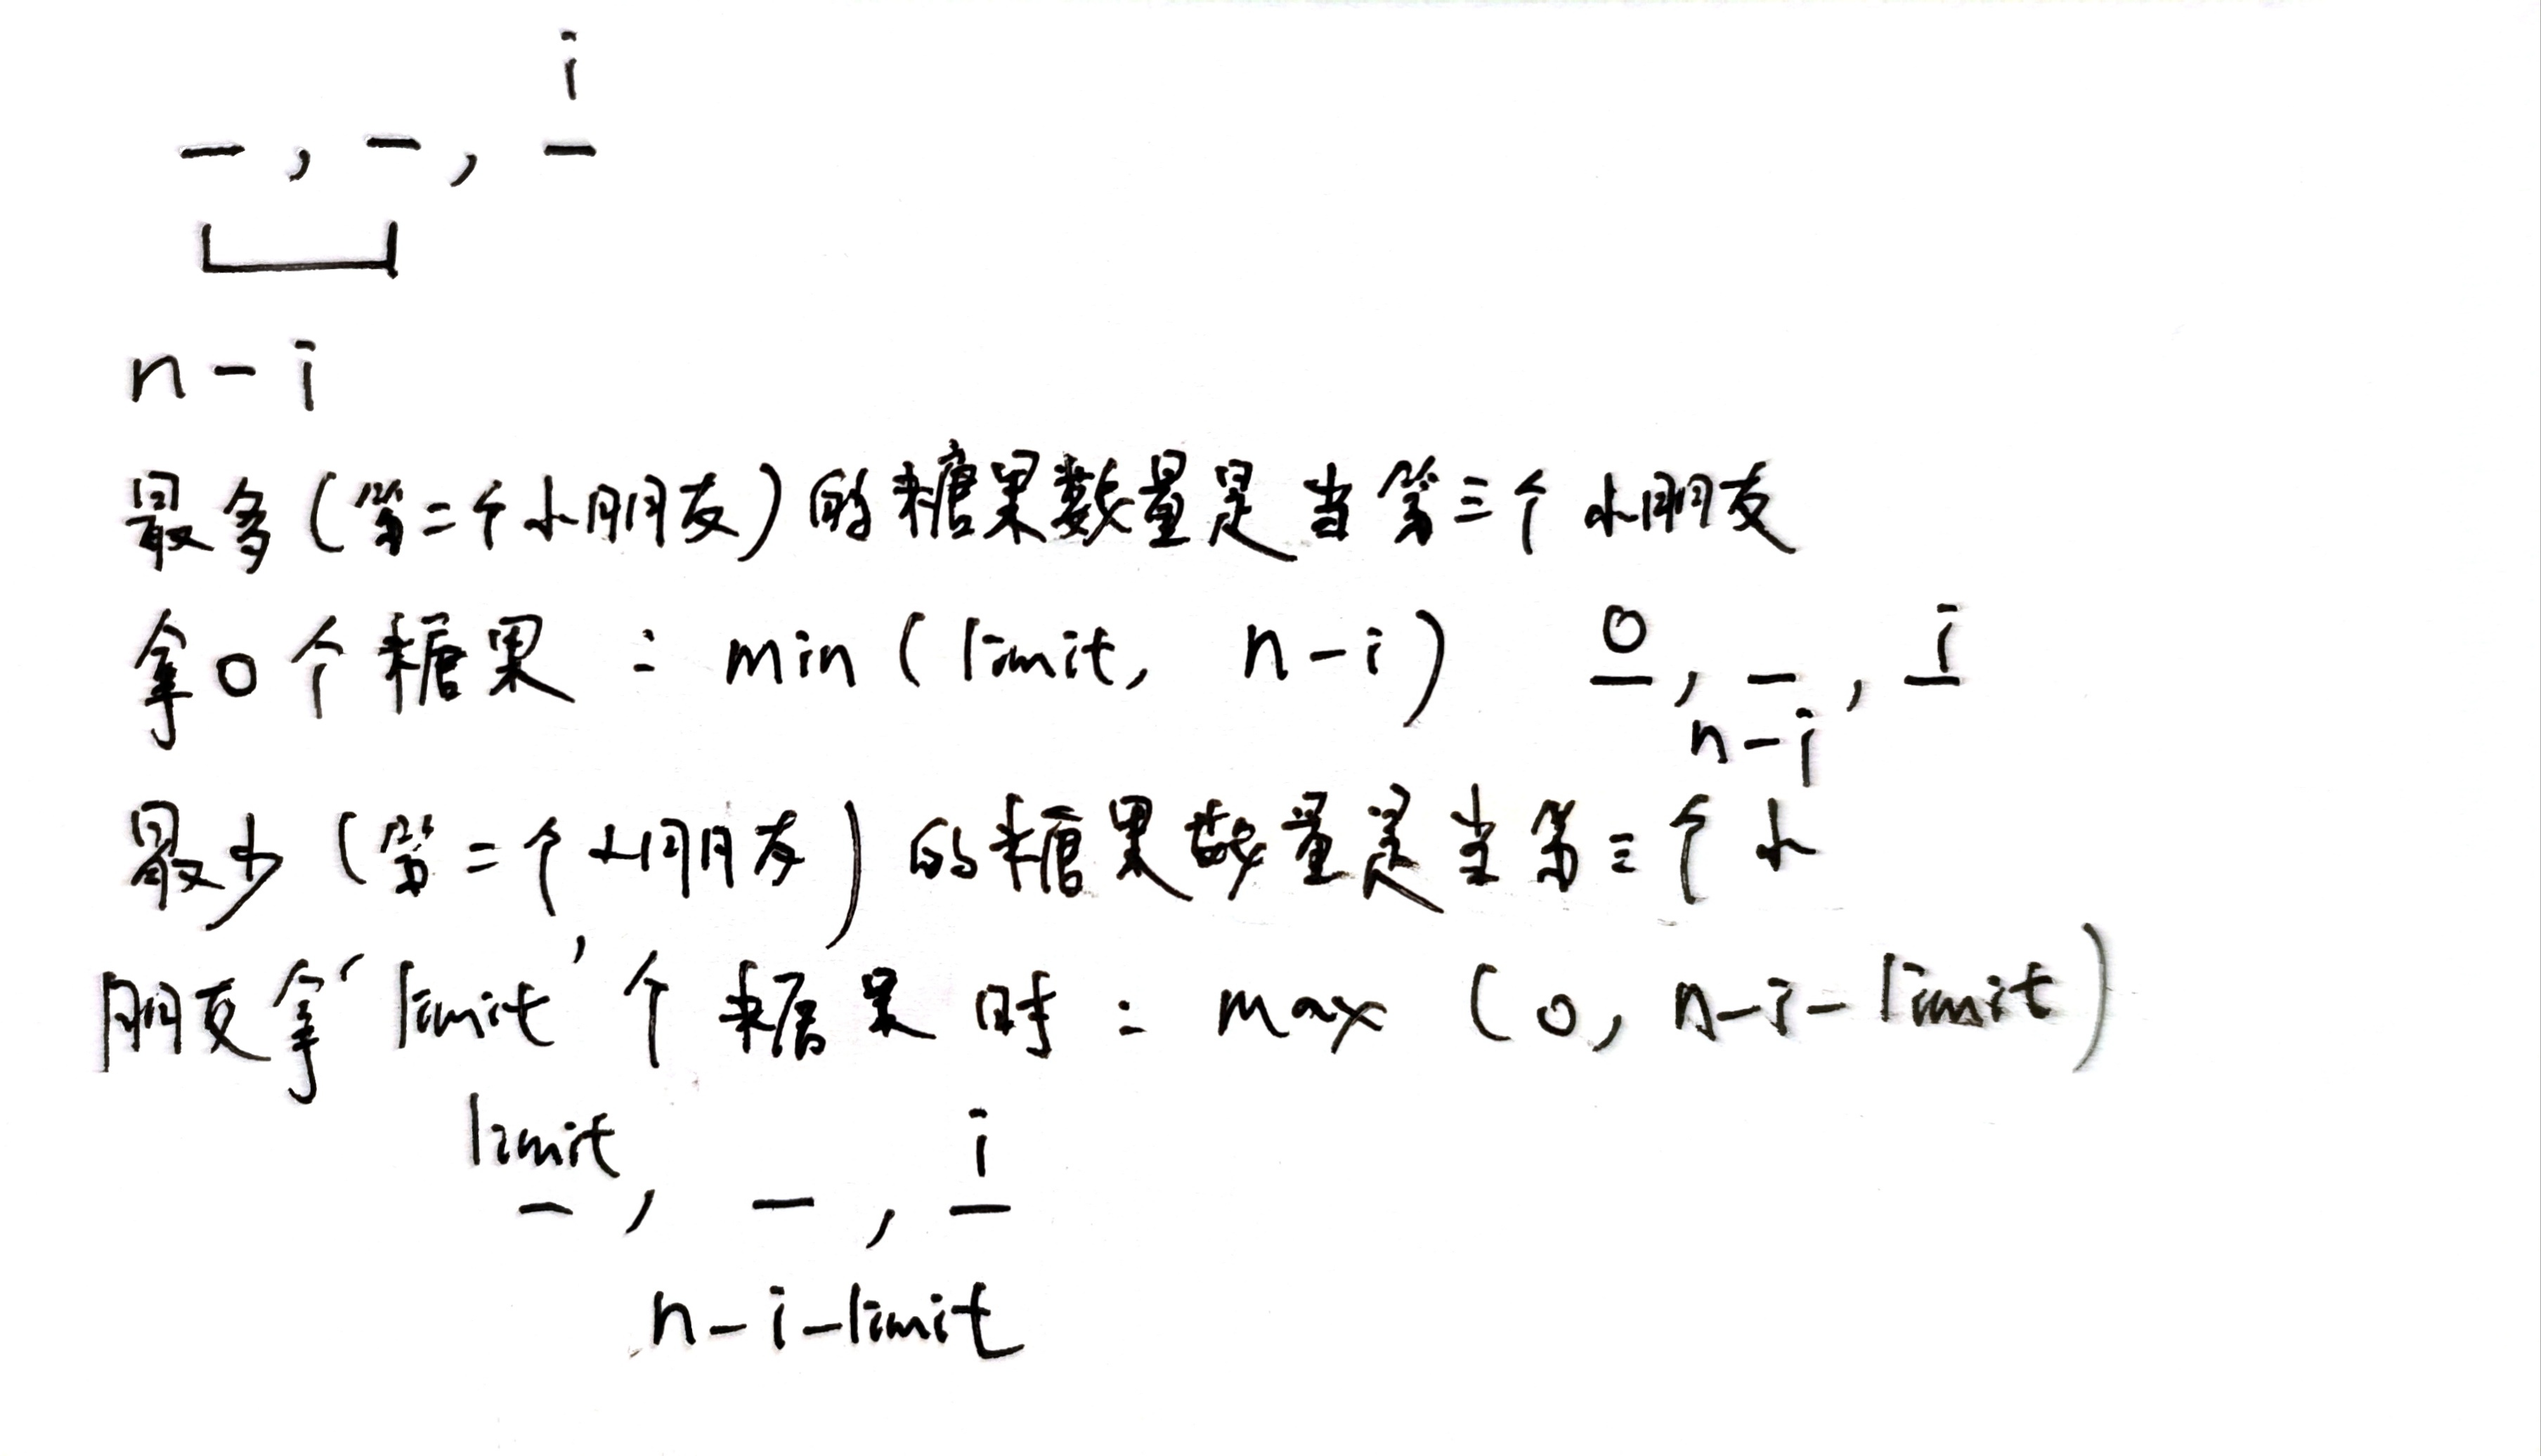 i
_ , _ , _
n - i
最多(第二个小朋友)的糖果数量是当第三个小朋友
拿0个糖果 : min ( limit, n - i ) 0 , _ , i
n - i
最少 (第二个小朋友) 的糖果数量是当第三个小
朋友拿'limit'个糖果时 : max ( 0, n-i-limit)
limit, _ , i
n - i - limit